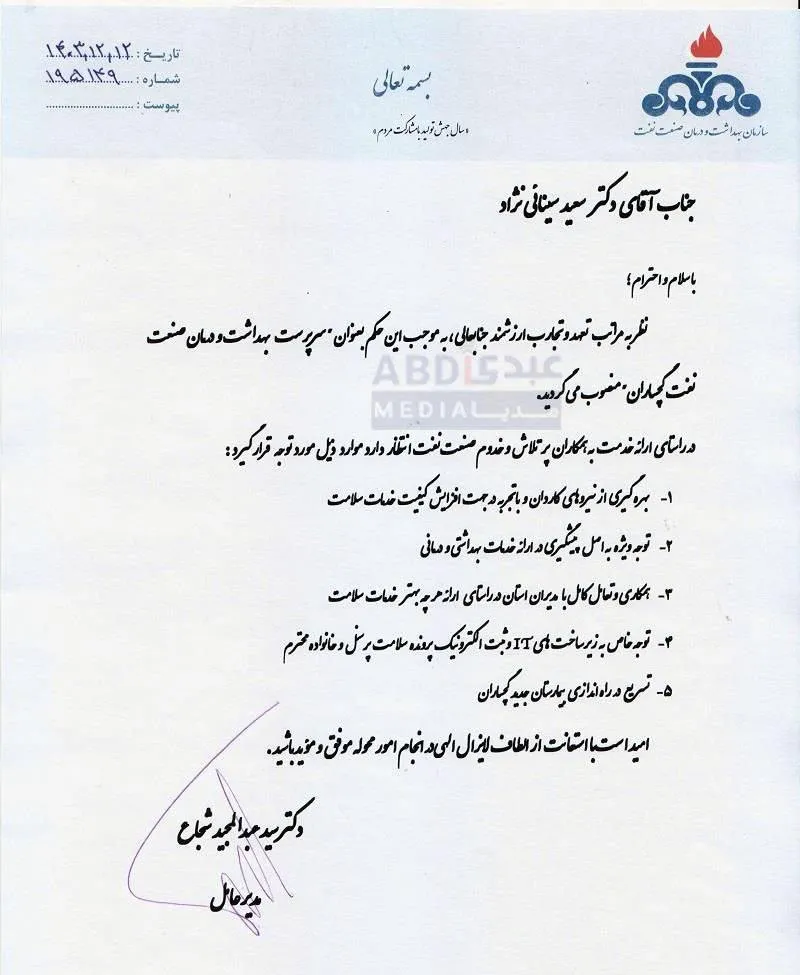 تاریخ : ۱۴۰۳,۱۲,۱۲
شماره : ۱۹۵۱۴۹
پیوست :
بسمه تعالی
«سال جهش تولید با مشارکت مردم»
سازمان بهداشت و درمان صنعت نفت
جناب آقای دکتر سعید سینائی نژاد
باسلام و احترام؛
نظر به مراتب تعهد و تجارب ارزشمند جنابعالی، به موجب این حکم بعنوان "سرپرست بهداشت و درمان صنعت
نفت گچساران" منصوب می گردید.
ABDI عبدی
MEDIA مدیا
در راستای ارائه خدمت به همکاران پر تلاش و خدوم صنعت نفت انتظار دارد موارد ذیل مورد توجه قرار گیرد:
۱- بهره گیری از نیروهای کاردان و باتجربه در جهت افزایش کیفیت خدمات سلامت
۲- توجه ویژه به اصل پیشگیری در ارائه خدمات بهداشتی و درمانی
۳- همکاری و تعامل کامل با مدیران استان در راستای ارائه هر چه بهتر خدمات سلامت
۴- توجه خاص به زیرساخت های IT و ثبت الکترونیک پرونده سلامت پرسنل و خانواده محترم
۵- تسریع در راه اندازی بیمارستان جدید گچساران
امید است با استعانت از الطاف لایزال الهی در انجام امور محوله موفق و مؤید باشید.
دکتر سید عبدالمجید شجاع
مدیرعامل